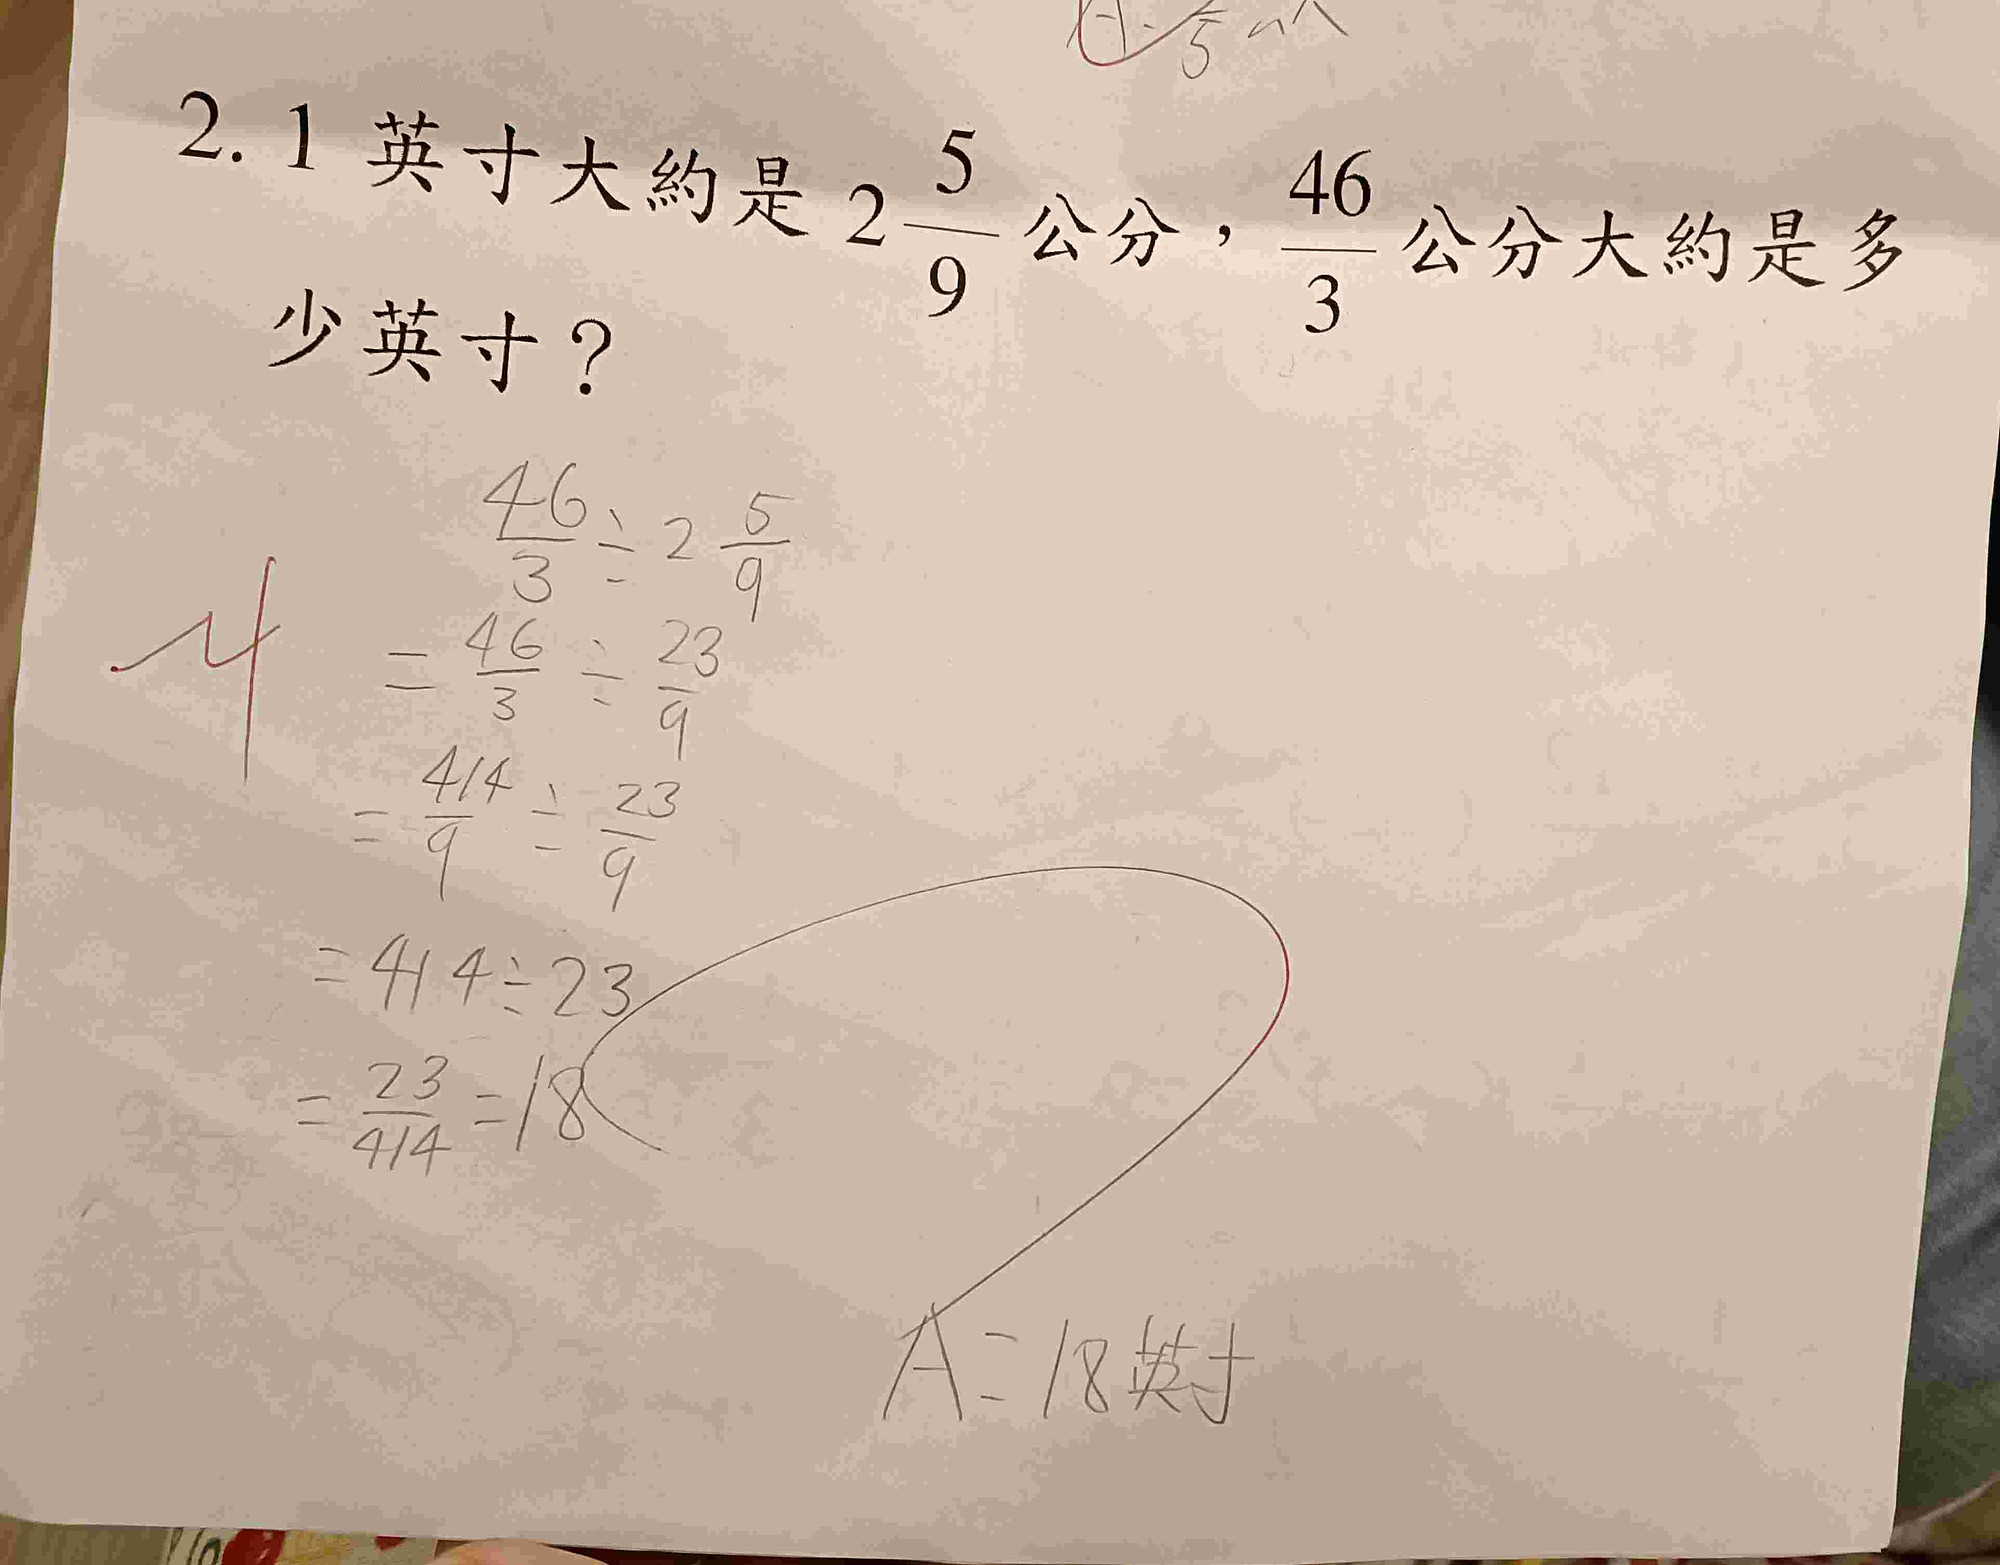 2. 1 英寸大約是 2 5/9 公分，46/3 公分大約是多
少英寸？
46/3 ÷ 2 5/9
= 46/3 ÷ 23/9
= 414/9 ÷ 23/9
= 414 ÷ 23
= 23/414 = 18
A = 18英寸